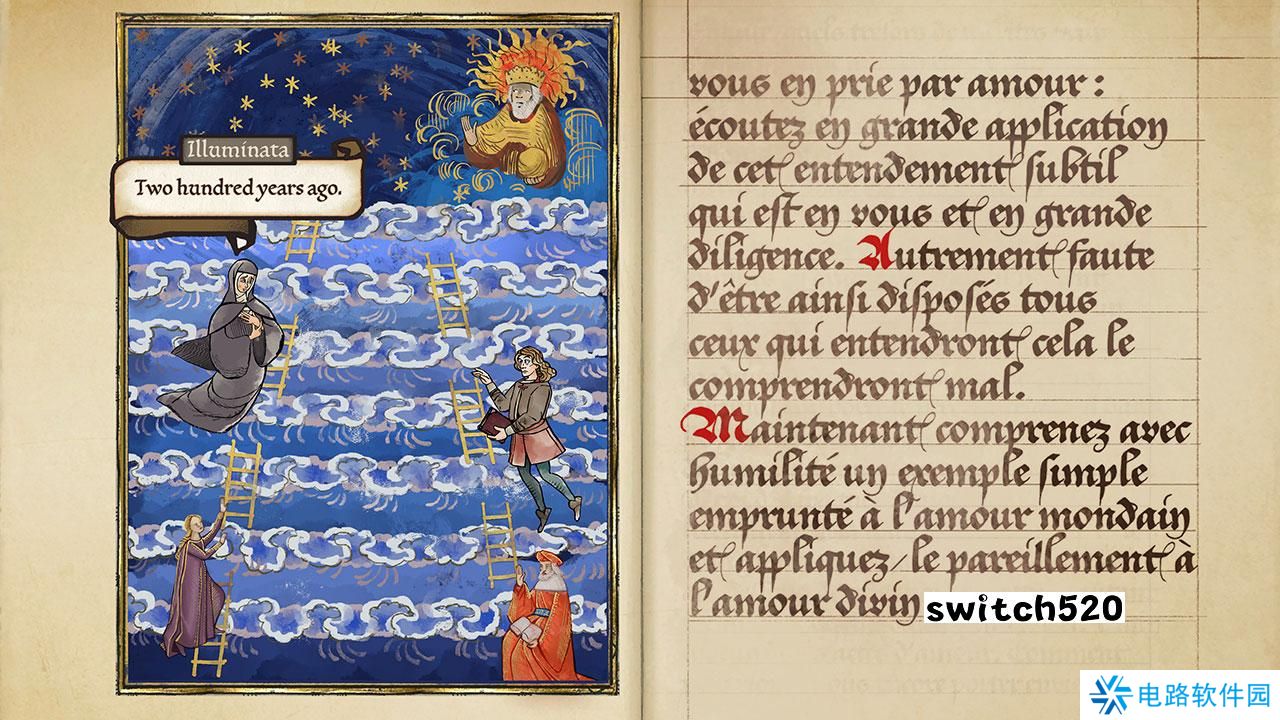 Illuminata
Two hundred years ago.
vous en prie par amour :
écoutez en grande application
de cet entendement subtil
qui est en vous et en grande
diligence. Autrement faute
d'être ainsi disposés tous
ceux qui entendront cela le
comprendront mal.
Maintenant comprenez avec
humilité un exemple simple
emprunté à l'amour mondain
et appliquez-le pareillement à
l'amour divin
switch520
电路软件园